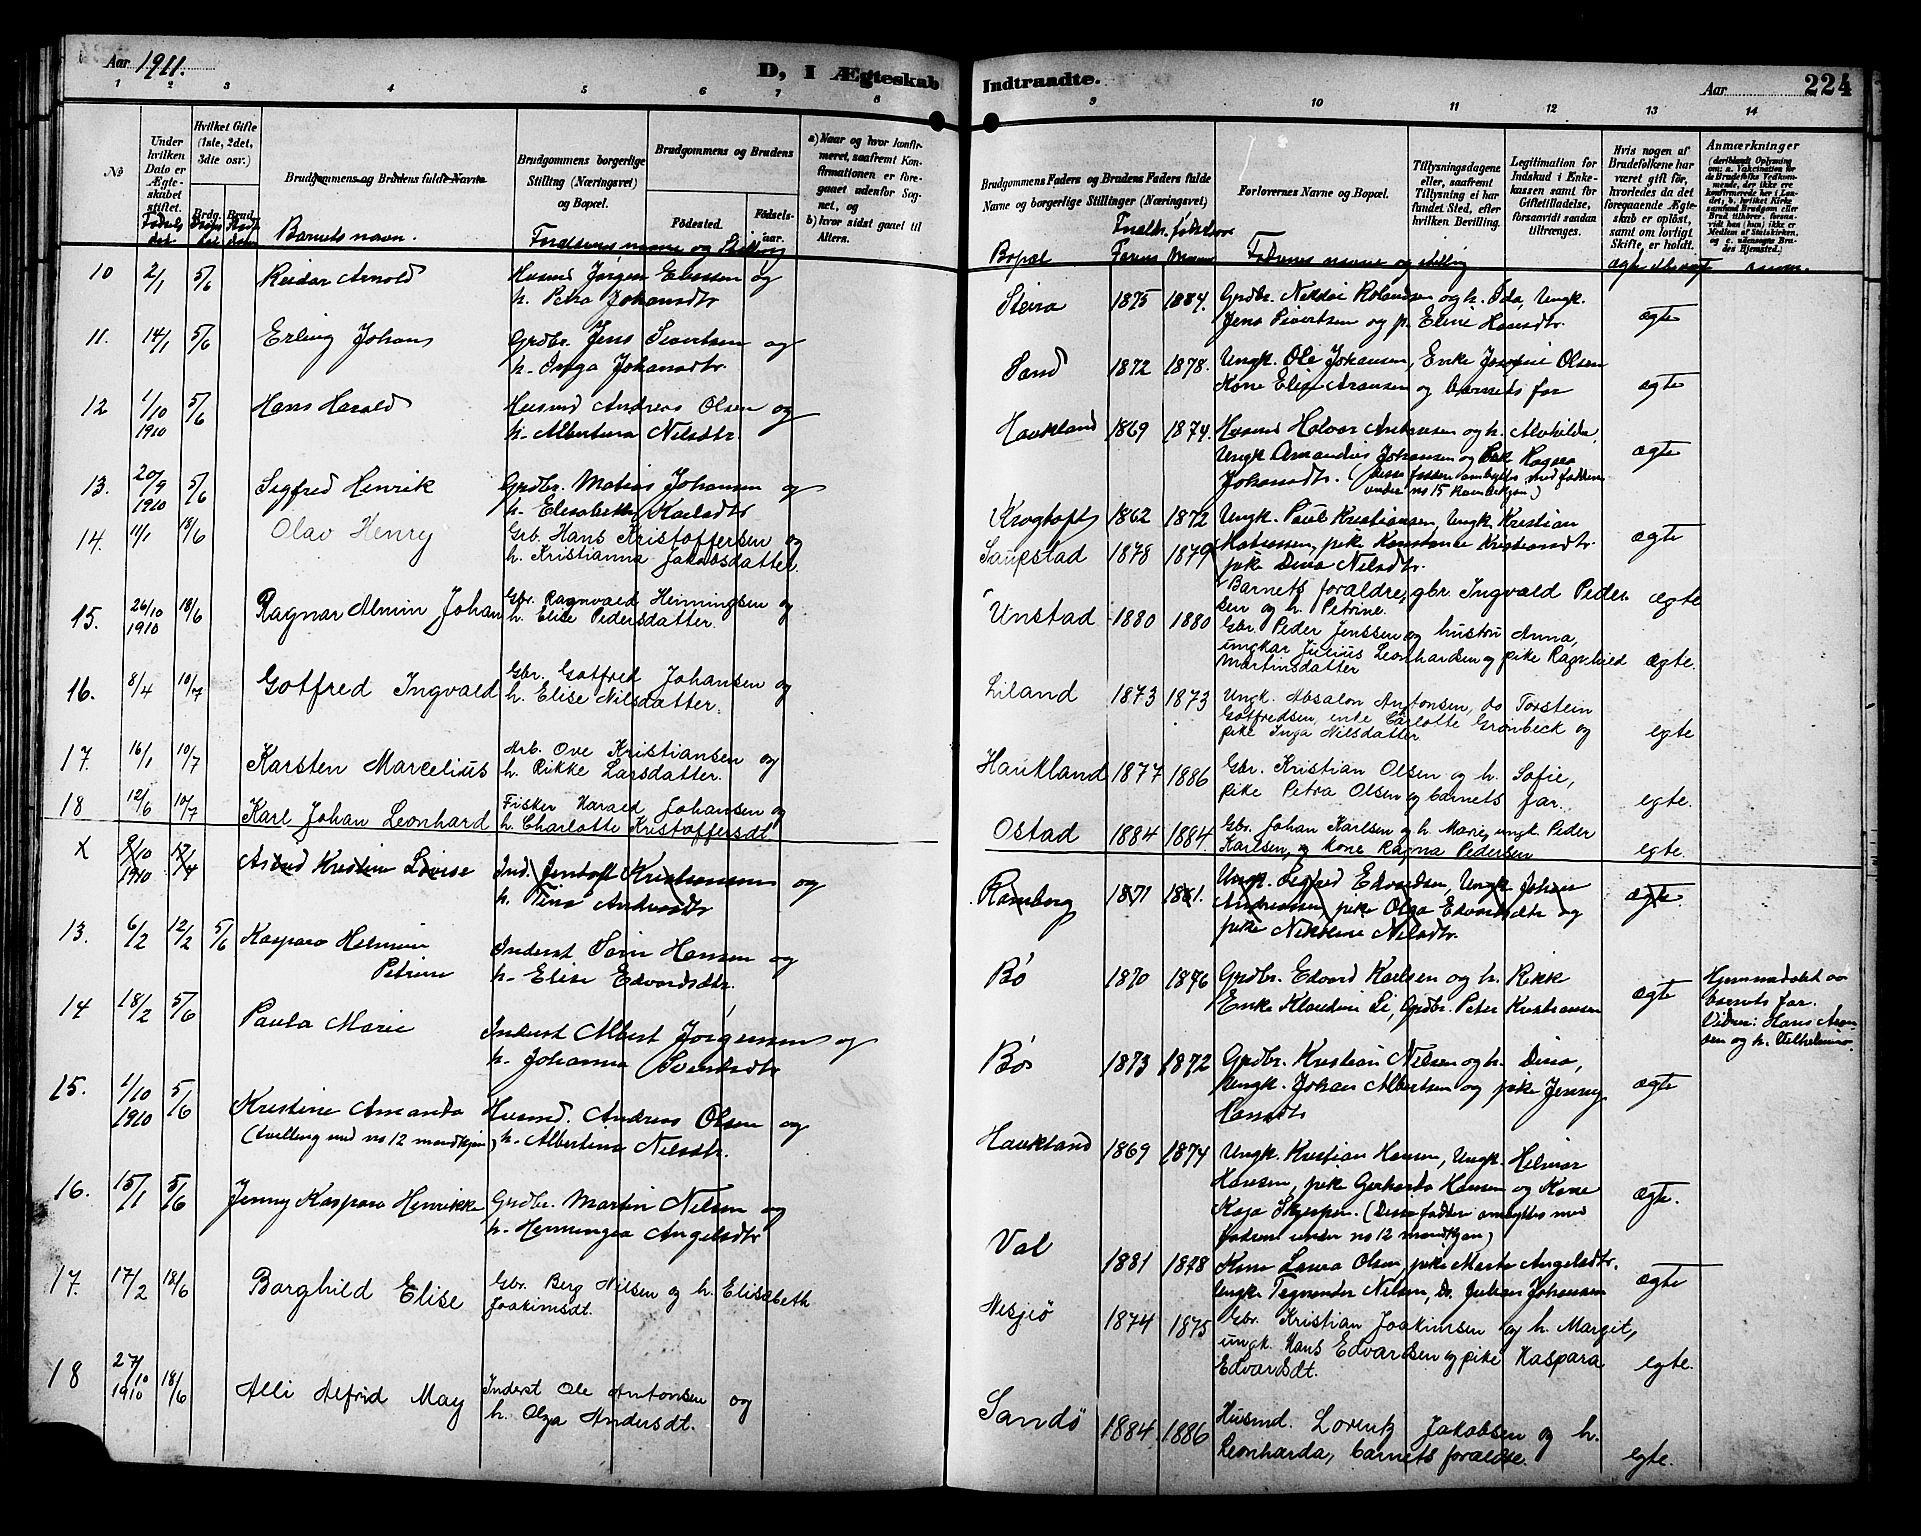 Aar 1911. D, I Ægteskab Indtraadte. Aar 224
1 2 3 4 5 6 7 8 9 10 11 12 13 14
No
Under hvilken Dato er Ægteskabet stiftet.
Hvilket Gifte (1ste, 2det, 3die osv.)
Brdg. Brud.
Brudgommens og Brudens fulde Navne
Brudgommens borgerlige Stilling (Næringsvei) og Bopæl.
Brudgommens og Brudens
Fødested. Fødselsaar.
a) Naar og hvor konfirmeret, saafremt Konfirmationen er foregaaet udenfor Sognet, og
b) hvor sidst gaaet til Alters.
Brudgommens Faders og Brudens Faders fulde Navne og borgerlige Stillinger (Næringsvei)
Forlovernes Navne og Bopæl.
Tillysningsdagene eller, saafremt Tillysning ei har fundet Sted, efter hvilken Bevilling.
Legitimation for Indskud i Enkekassen samt for Giftetilladelse, forsaavidt saadan tiltrænges.
Hvis nogen af Brudefolkene har været gift før, hvorledes da det foregaaende Ægteskab er opløst, samt om lovligt Skifte er holdt.
Anmærkninger
Barnets navn. Forældrenes navne og Stilling
Bopæl Fadernes navne og stilling
10 2/1 5/6 Reidar Arnold Husmd Jørgen Ellessen og
h. Petra Johansdtr
Steira 1875 1884. Grdbr. Nikolai Rolandsen og h. Ida, Ungk.
Jens Sivertsen og p. Eline Hansdtr. ægte
11. 14/1 5/6 Erling Johans Grdbr. Jens Sivertsen og
h. Inga Johansdtr.
Sand 1872 1878. Ungk. Ole Johansen, Enke Josefine Olsen
Kone Elise Aronsen og barnets far ægte
12 1/10 1910 5/6 Hans Harald Husmd Andreas Olsen og
h. Albertina Nilsdtr.
Haukland 1869 1874. Husmd Halvar Antonsen og h. Alvhilda,
Ungk Amandus Johansen og Pike Ragna
Johansdtr. (Disse faddere ombyttes med fadderne
under no 15 kvindekjøn) ægte
13. 20/9 1910 5/6 Sigfred Henrik Grdbr. Matias Johansen og
h. Elisabeth Karlsdtr
Krogtoft 1862 1872 Ungk. Paul Kristiansen, Ungk. Kristian
Matiassen, pike Konstance Kristiansdtr.
pike Dina Nilsdtr. ægte
14. 11/1 18/6 Olav Henry Grb. Hans Kristoffersen og
h. Kristianna Jakobsdatter.
Saupstad 1878 1879
Barnets foraldre, gbr. Ingvald Peder
sen og h. Petrine. ægte
15. 26/10 1910 18/6 Ragnar Almin Johan Gbr. Ragnvald Henningsen og
h. Elise Pedersdatter.
Unstad 1880 1880 Gbr. Peder Jenssen og hustru Anna,
ungkar Julius Leonhardsen og pike Ragnhild
Martinsdatter ægte.
16. 8/4 10/7 Gotfred Ingvald Gbr. Gotfred Johansen og
h. Elise Nilsdatter.
Liland 1873 1873 Ungk. Absalon Antonsen, do Torstein
Gotfredsen, enke Carlotte Grønbeck og
pike Inga Nilsdatter egte
17. 16/1 10/7 Karsten Marcelius Arb. Ove Kristiansen og
h. Rikke Larsdatter.
Haukland 1877 1886 Gbr. Kristian Olsen og h. Sofie,
pike Petra Olsen og barnets far. egte.
18 12/6 10/7 Karl Johan Leonhard Fisker Harald Johansen og
h. Charlotte Kristoffersdt.
Ostad 1884 1884. Gbr. Johan Karlsen og h. Marie, ungk. Peder
Karlsen, og kone Ragna Pedersen egte.
X 9/10 1910 17/4 Astrid Kristine Lovise Ind. Jentoft Kristiansen og
h. Tina Andersdtr
Ramberg 1871 1881. Ungk. Sigfred Edvardsen, Ungk Johan
Andreassen, pike Olga Edvardsdtr og
pike Nikoline Nilsdtr. ægte
13. 6/2 12/2 5/6 Kaspara Helmine
Petrine
Inderst Søren Hansen og
h. Elise Edvardsdtr.
Bø 1870 1876 Grdbr. Edvard Karlsen og h. Rikke
Enke Klaudine Li, Grdbr. Peter Kristiansen ægte
Hjemmedøbt av
barnets far.
Vidner: Hans Aron
sen og h. Vilhelmine.
14 18/2 5/6 Paula Marie Inderst Albert Jørgensen og
h. Johanna Sivertsdtr
Bø 1873 1872 Grdbr. Kristian Nilsen og h. Dina,
Ungk. Johan Albertsen og pike Jenny
Hansdtr ægte
15. 1/10 1910 5/6 Kristine Amanda
(tvilling med no 12 mandkjøn)
Husmd. Andreas Olsen og
h. Albertina Nilsdtr.
Haukland 1869 1874 Ungk. Kristian Hansen, Ungk. Hilmar
Hansen, pike Gerharda Hansen og Kone
Kaja Skjesper. (Disse faddere ombyttes med
fadrene under no 12 mandkjøn) ægte.
16. 15/1 5/6 Jenny Kaspara Henrikke Grdbr. Martin Nilsen og
h. Henningea Angelsdtr
Val 1881 1878 Kone Laura Olsen, pike Marte Angelsdtr.
Ungk. Tegnander Nilsen, Do. Julian Johansen ægte
17. 17/2 18/6 Borghild Elise Gbr. Berg Nilsen og h. Elisabeth
Joakimsdt.
Nesjeø 1874 1875 Gbr. Kristian Joakimsen og h. Margit,
ungk. Hans Edvardsen og pike Kaspara
Edvardsdt. egte.
18 27/10 1910 18/6 Alli Alfrid May Inderst Ole Antonsen og
h. Olga Andersdt.
Sandø 1884 1886 Husmd. Lorentz Jakobsen og h.
Leonharda, barnets foraldre. egte.